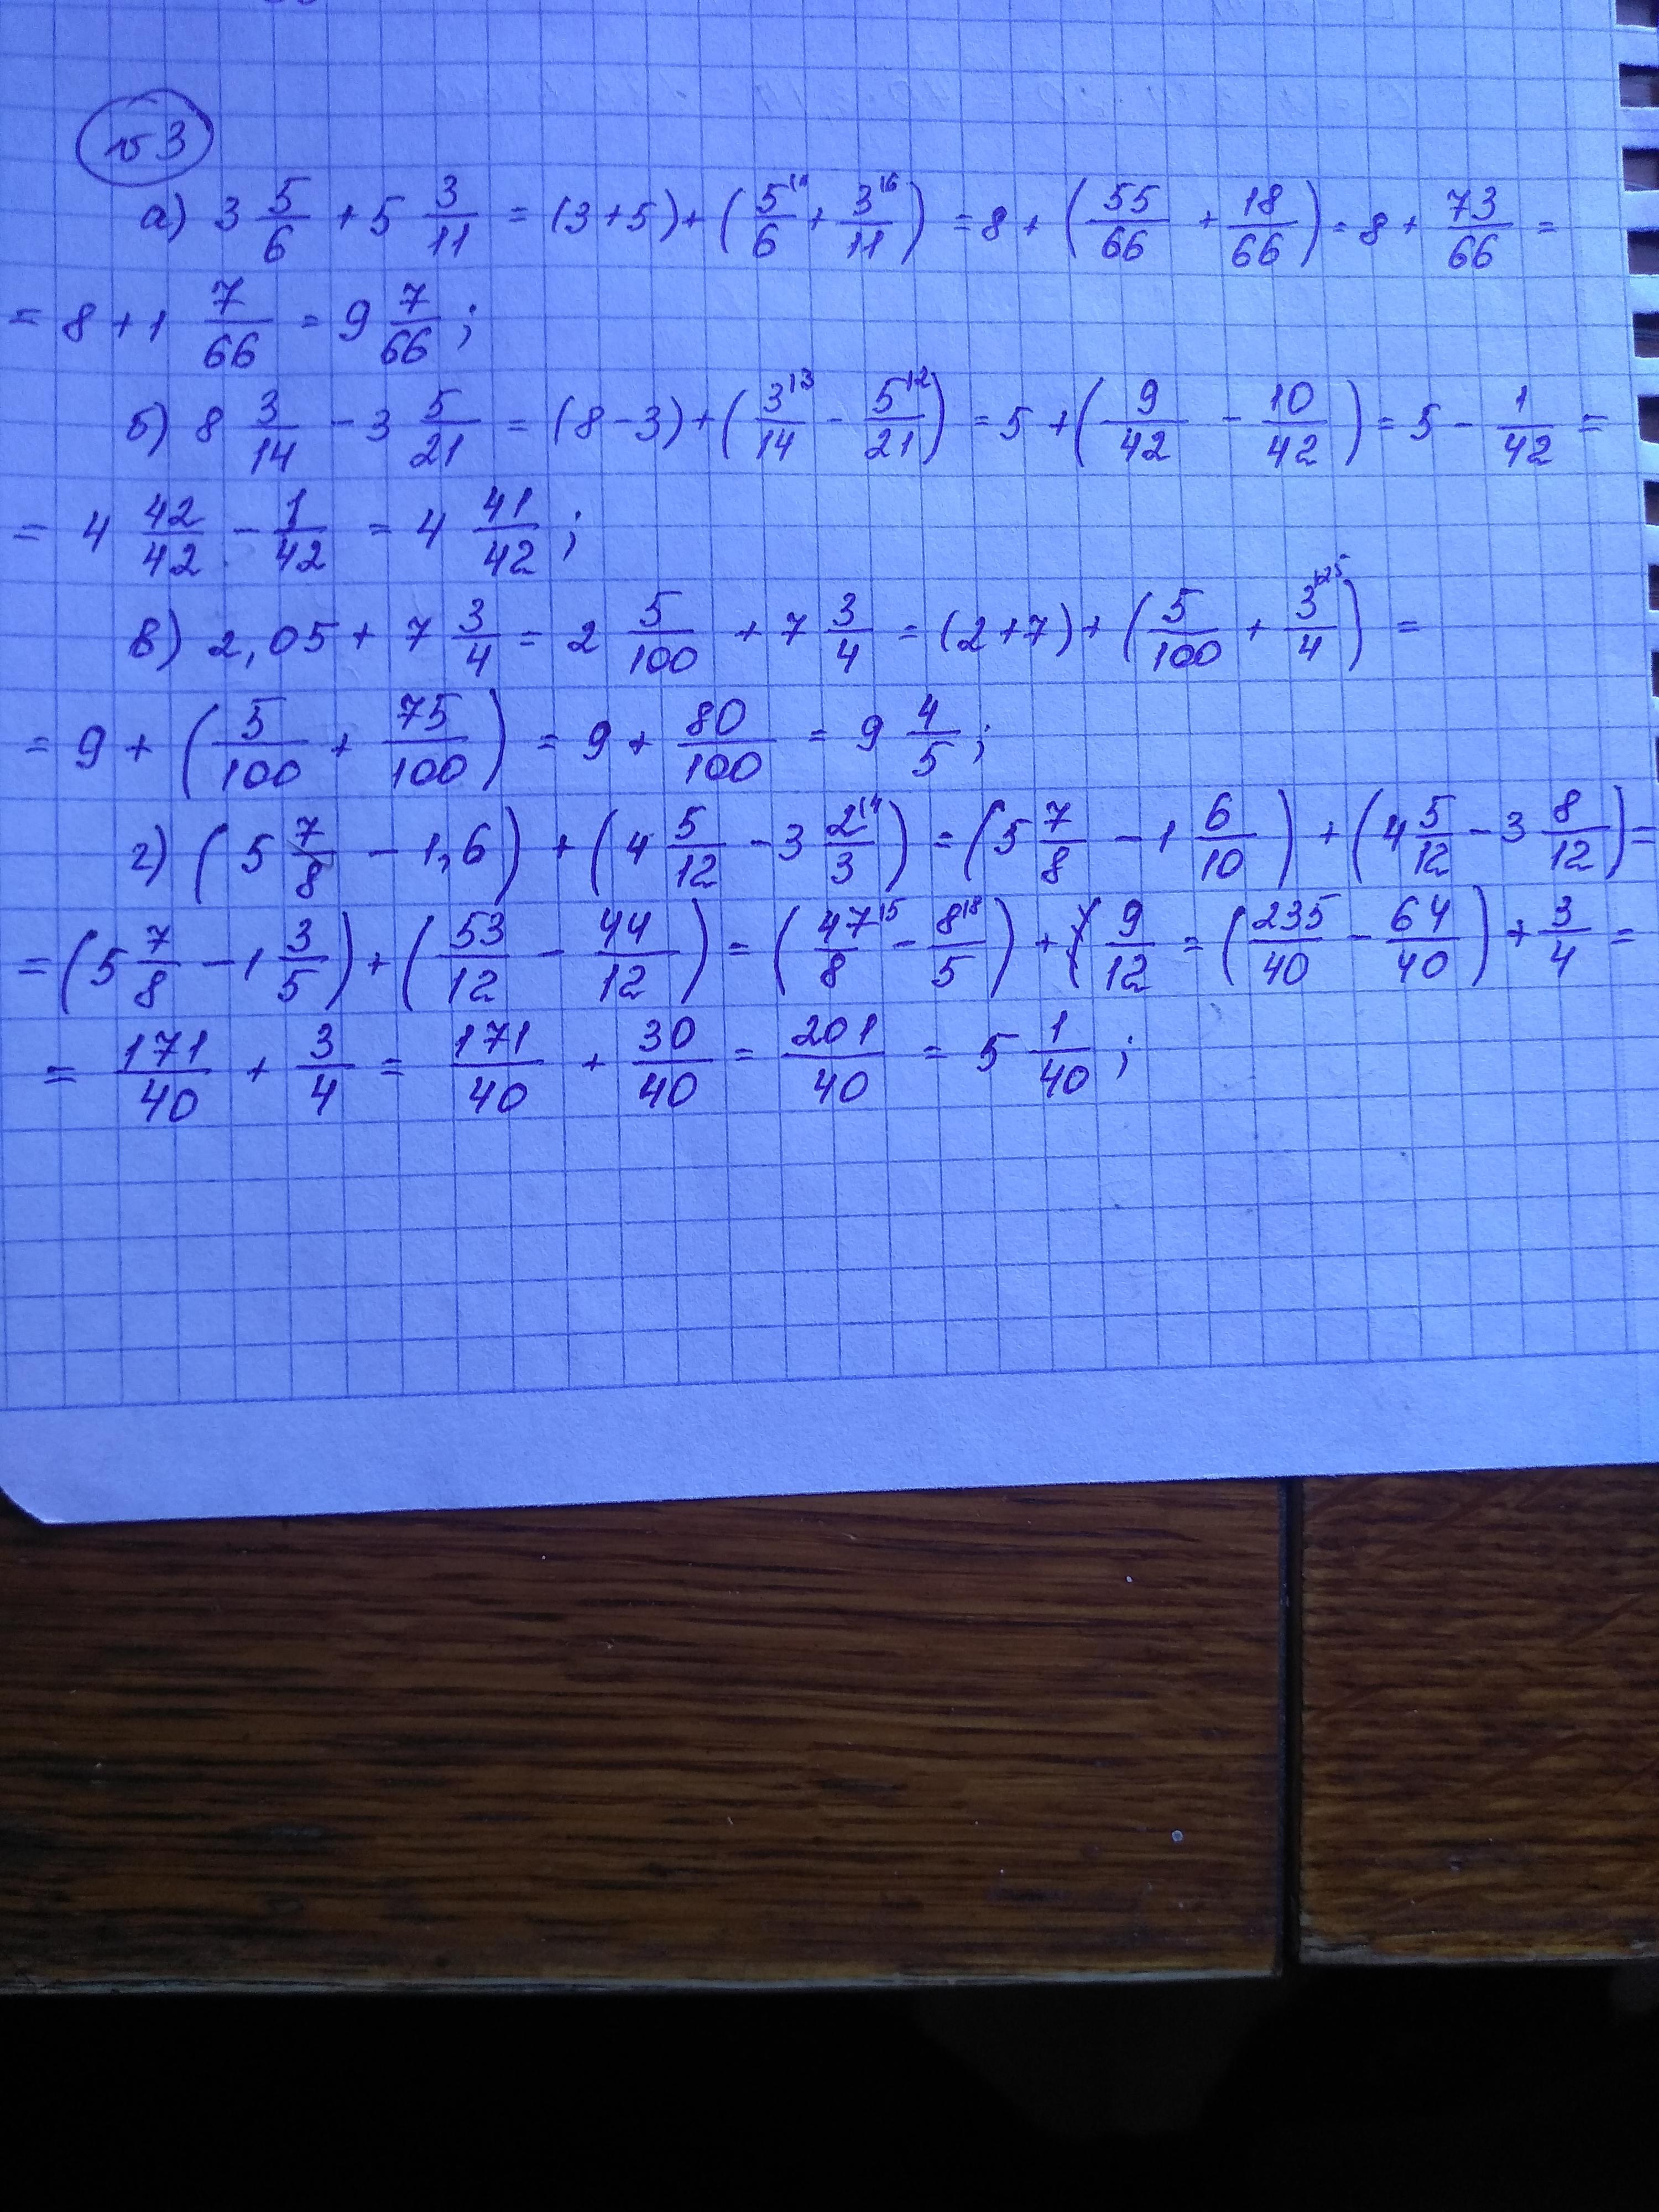 №3
а) 3 5/6 + 5 3/11 = (3+5) + (5/6 + 3/11) = 8 + (55/66 + 18/66) = 8 + 73/66 =
= 8 + 1 7/66 = 9 7/66;
б) 8 3/14 - 3 5/21 = (8-3) + (3/14 - 5/21) = 5 + (9/42 - 10/42) = 5 - 1/42 =
= 4 42/42 - 1/42 = 4 41/42;
в) 2,05 + 7 3/4 = 2 5/100 + 7 3/4 = (2+7) + (5/100 + 3/4) =
= 9 + (5/100 + 75/100) = 9 + 80/100 = 9 4/5;
г) (5 7/8 - 1,6) + (4 5/12 - 3 2/3) = (5 7/8 - 1 6/10) + (4 5/12 - 3 8/12) =
= (5 7/8 - 1 3/5) + (53/12 - 44/12) = (47/8 - 8/5) + 9/12 = (235/40 - 64/40) + 3/4 =
= 171/40 + 3/4 = 171/40 + 30/40 = 201/40 = 5 1/40;